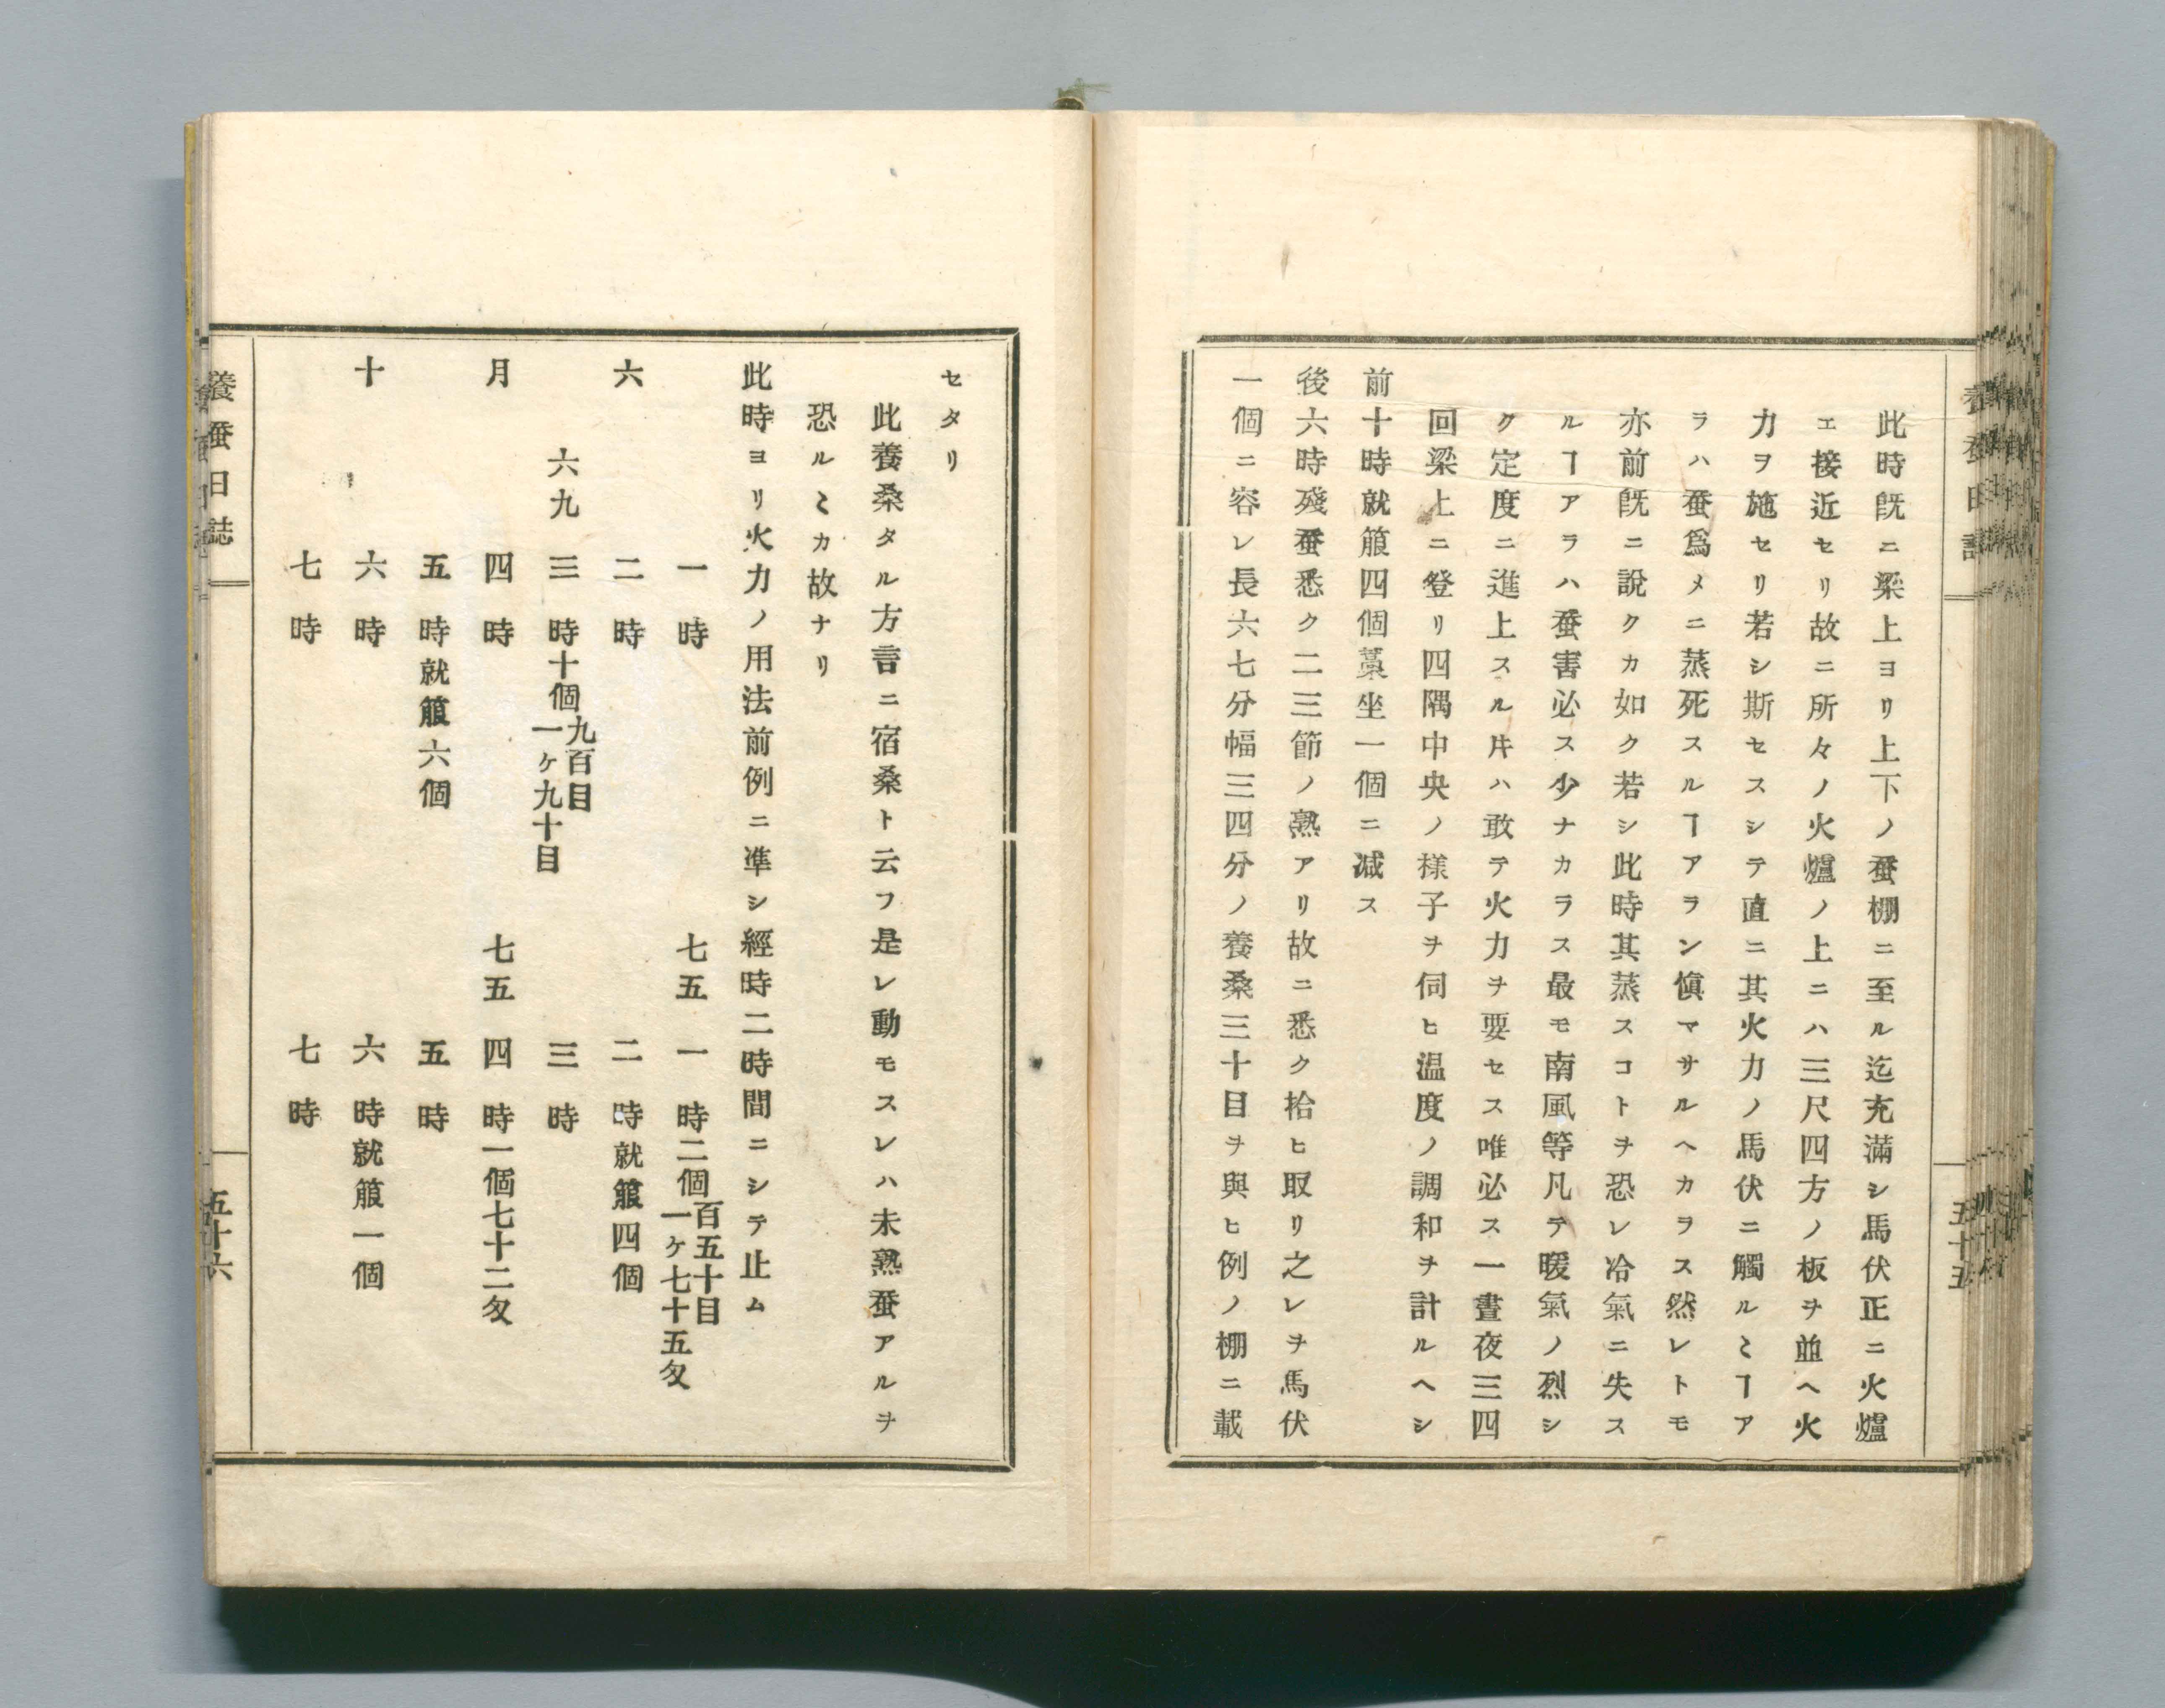 養蚕日誌
五十五
此時既ニ梁上ヨリ上下ノ蚕棚ニ至ル迄充滿シ馬伏正ニ火爐
エ接近セリ故ニ所々ノ火爐ノ上ニハ三尺四方ノ板ヲ並ヘ火
力ヲ施セリ若シ斯セスシテ直ニ其火力ノ馬伏ニ觸ルヽヿア
ラハ蚕爲メニ蒸死スルヿアラン愼マサルヘカラス然レトモ
亦前既ニ說クカ如ク若シ此時其蒸スコトヲ恐レ冷氣ニ失ス
ルヿアラハ蚕害必ス少ナカラス最モ南風等凡テ暖氣ノ烈シ
ク定度ニ進上スル片ハ敢テ火力ヲ要セス唯必ス一晝夜三四
回梁上ニ登リ四隅中央ノ樣子ヲ伺ヒ温度ノ調和ヲ計ルヘシ
前十時就䈰四個藁坐一個ニ減ス
後六時殘蚕悉ク二三節ノ熟アリ故ニ悉ク拾ヒ取リ之レヲ馬伏
一個ニ容レ長六七分幅三四分ノ養桑三十目ヲ與ヒ例ノ棚ニ載
セタリ
此養桑タル方言ニ宿桑ト云フ是レ動モスレハ未熟蚕アルヲ
恐ルヽカ故ナリ
此時ヨリ火力ノ用法前例ニ準シ經時二時間ニシテ止ム
一時 七五 一時二個百五十目一ケ七十五匁
六 二時 二時就䈰四個
六九 三時十個九百目一ケ九十目 三時
月 四時 七五 四時一個七十二匁
五時就䈰六個 五時
十 六時 六時就䈰一個
七時 七時
養蚕日誌
五十六